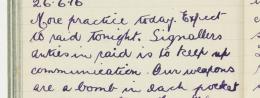 26.6.16
More practice today. Expect
to raid tonight. Signallers
duties in raid is to keep up
communication. Our weapons
are a bomb in each pocket